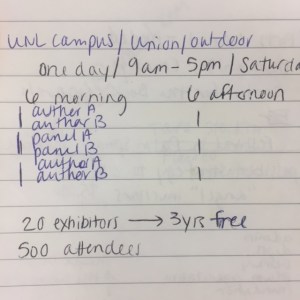 UNL Campus / Union / outdoor
one day / 9am - 5pm / Saturda
6 morning 6 afternoon
author A
author B
panel A
panel B
author A
author B
20 exhibitors → 3 yrs free
500 attendees